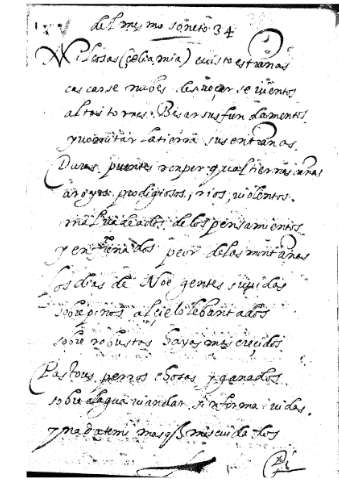 del mesmo soneto 34
Mil cosas (celia mia) e visto estrañas
cascarse nubes desbocarse vientos
altas torres Besar sus fundamentos
y vomitar la tierra sus entrañas.
Duras puentes romper qual tiernas cañas
arroyos prodigiosos, rios violentos.
mal vadeados de los pensamientos
y enfrenados peor de las montañas
los dias de Noe gentes supidas
sobre pinos al cielo lebantados
sobre robustas hayas mas crecidos
Pastores perros chosas y ganados
sobre el agua vi andar sin forma vidas.
y nada temi mas q mis cuidados